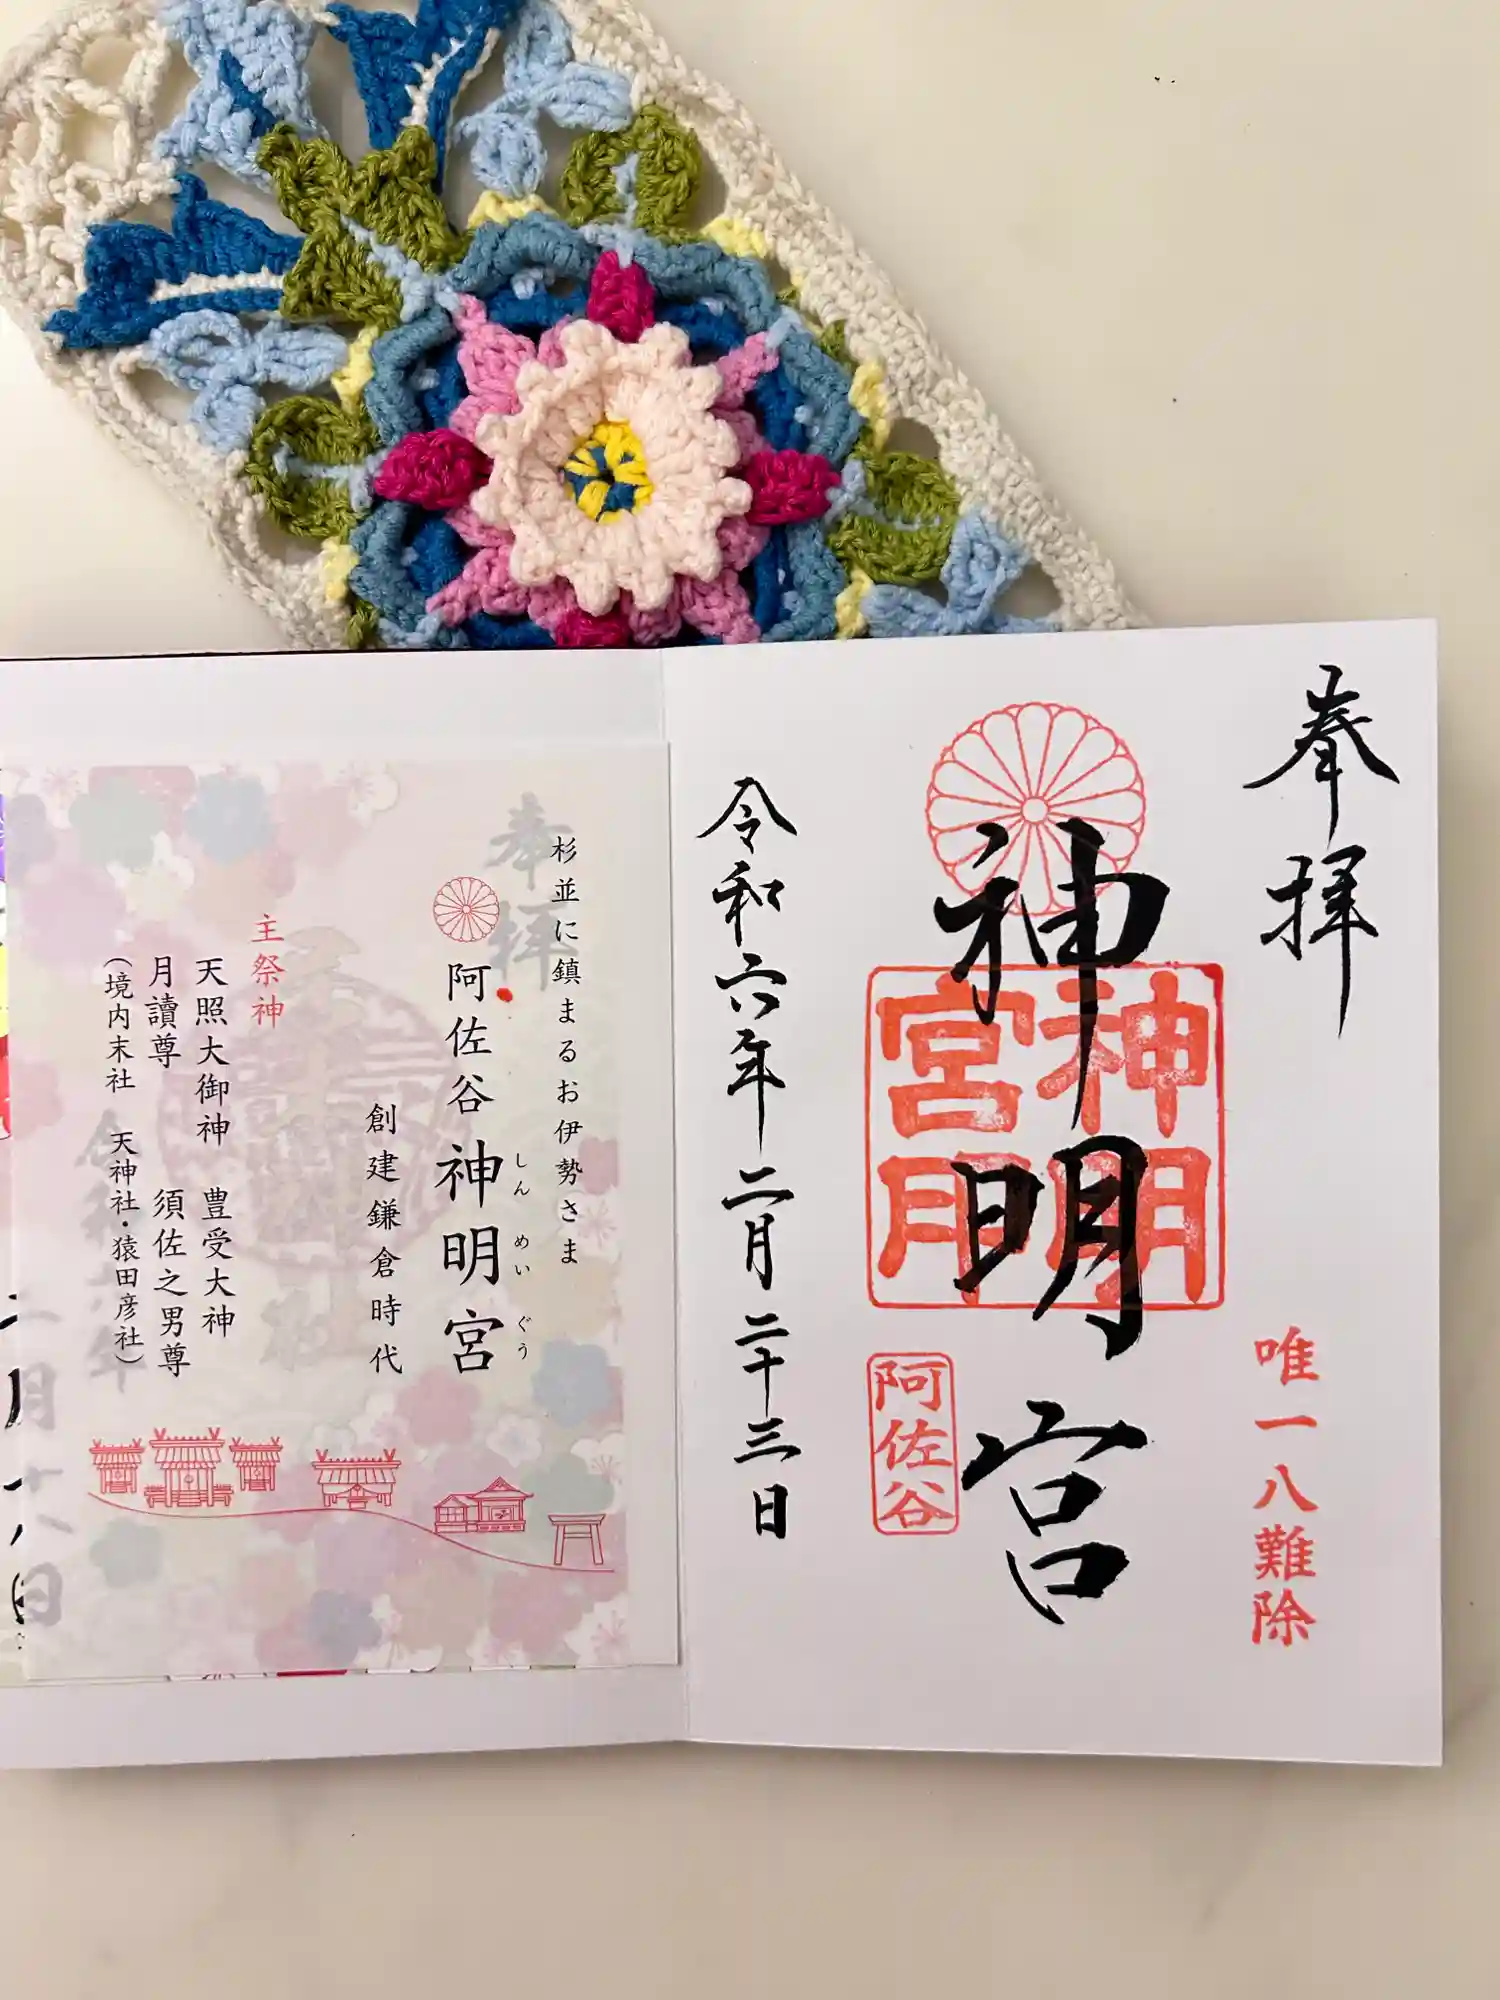 奉拝
唯一八難除
神明宮
神明宮
阿佐谷
令和六年二月二十三日
杉並に鎮まるお伊勢さま
阿佐谷神明宮
しんめいぐう
創建鎌倉時代
主祭神
天照大御神 豊受大神
月讀尊 須佐之男尊
(境内末社 天神社・猿田彦社)
奉拝